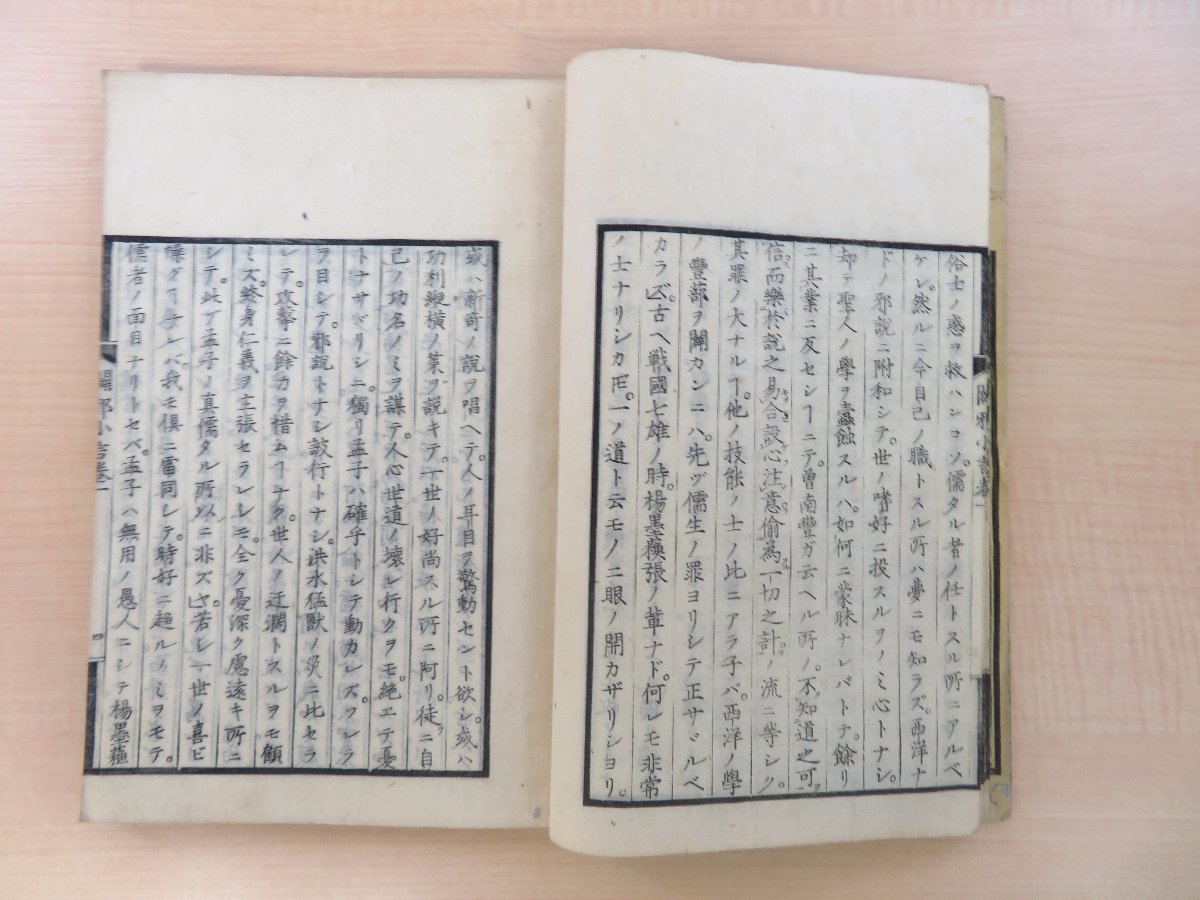 俗士ノ惑ヲ救ハンコソ。儒タル者ノ任トスル所ニアルベ
ケレ。然ルニ今自己ノ職トスル所ハ夢ニモ知ラズ。西洋ナ
ドノ邪説ニ附和シテ。世ノ嗜好ニ投スルヲノミ心トナシ。
却テ聖人ノ學ヲ蠧蝕スルハ。如何ニ蒙昧ナレバトテ。餘リ
ニ其業ニ反セシヿニテ。曾南豐ガ云ヘル所ノ。不知道之可
信而樂於說之易合設心注意偷為一切之計。ノ流ニ等シク。
其罪ノ大ナルヿ。他ノ技能ノ士ノ比ニアラ子バ。西洋ノ學
ノ豐蔀ヲ闢カンニハ。先ヅ儒生ノ罪ヨリシテ正サヾルベ
カラズ。古ヘ戦國七雄ノ時。楊墨蘓張ノ輩ナド。何レモ非常
ノ士ナリシカ𪜈。一ノ道ト云モノノ二眼ノ開カザリシヨリ。
闢邪小言卷一
或ハ新奇ノ說ヲ唱ヘテ。人ノ耳目ヲ驚動セント欲シ。或ハ
功利縱橫ノ策ヲ說キテ。一世ノ好尚スル所ニ阿リ。徒ニ自
己ノ功名ノミヲ謀テ。人心世道ノ壞レ行クヲモ。絶エテ憂
トナサヾリシニ。獨リ孟子ハ確乎トシテ動カレズ。ソレラ
ヲ目シテ。邪說トナシ詖行トナシ。洪水猛獸ノ災ニ比セラ
レテ。攻擊ニ餘力ヲ惜ムヿナク。世人ノ迂濶トスルヲモ顧
ミズ。終身仁義ヲ主張セラレシモ。全ク憂深ク慮遠キ所ニ
シテ。此ア孟子ノ真儒タル所以ニ非ズヤ。若シ一世ノ喜ビ
譟グヿナレバ。我モ俱ニ雷同シテ。時好ニ趨ルノミヲモテ。
儒者ノ面目ナリトセバ。孟子ハ無用ノ愚人ニシテ楊墨蘓
闢邪小言卷一
四